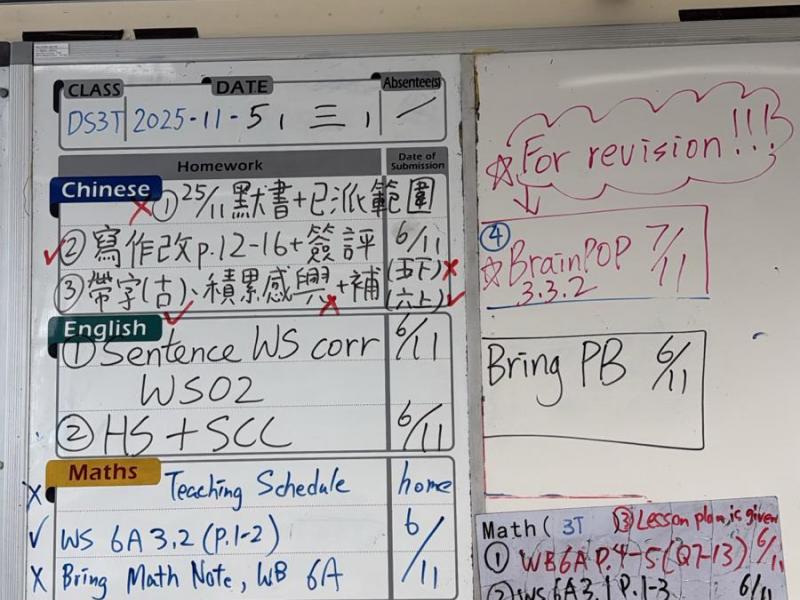 CLASS DATE Absentee(s)
DS3T 2025-11-5, 三, /
Homework Date of Submission
Chinese
×①25/11默書+已派範圍
✓②寫作改p.12-16+簽評 6/11
③帶字(古)✓、積累感興×+補 (五下)× (六上)✓
English
①Sentence WS corr 6/11
WS02
②HS+SCC 6/11
Maths
× Teaching Schedule home
✓ WS 6A 3.2 (P.1-2) 6/11
× Bring Math Note, WB 6A
☆For revision!!!
④
☆BrainPOP 7/11
3.3.2
Bring PB 6/11
Math( 3T ③Lesson plan, is given
① WB6A P.4-5(Q7-13) 6/11
②WS 6A 3.1 P.1-3 6/11